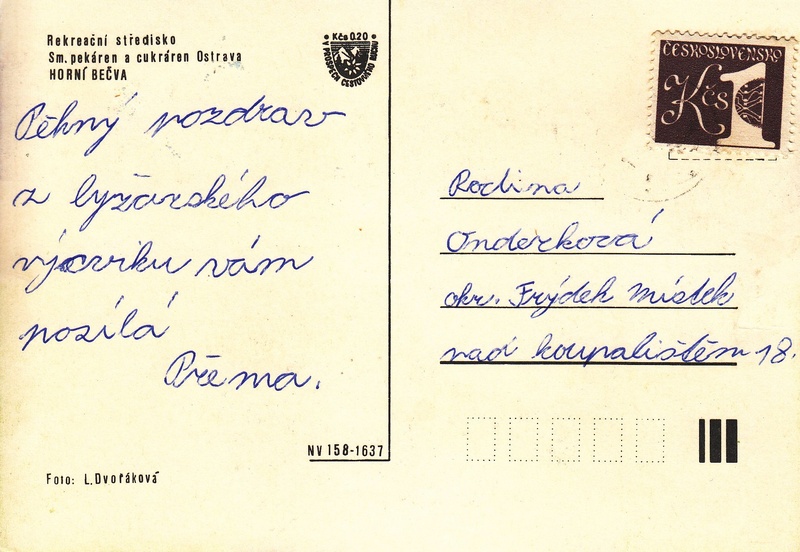 Rekreační středisko
Sm. pekáren a cukráren Ostrava
HORNÍ BEČVA
Kčs 0.20
V PROSPĚCH CESTOVNÍHO RUCHU
ČESKOSLOVENSKO
Kčs 1
Pěkný pozdrav
z lyžarského
výcviku vám
posílá
Přema.
Rodina
Onderková
okr. Frýdek Místek
nad koupalištěm 18.
NV 158-1637
Foto: L. Dvořáková